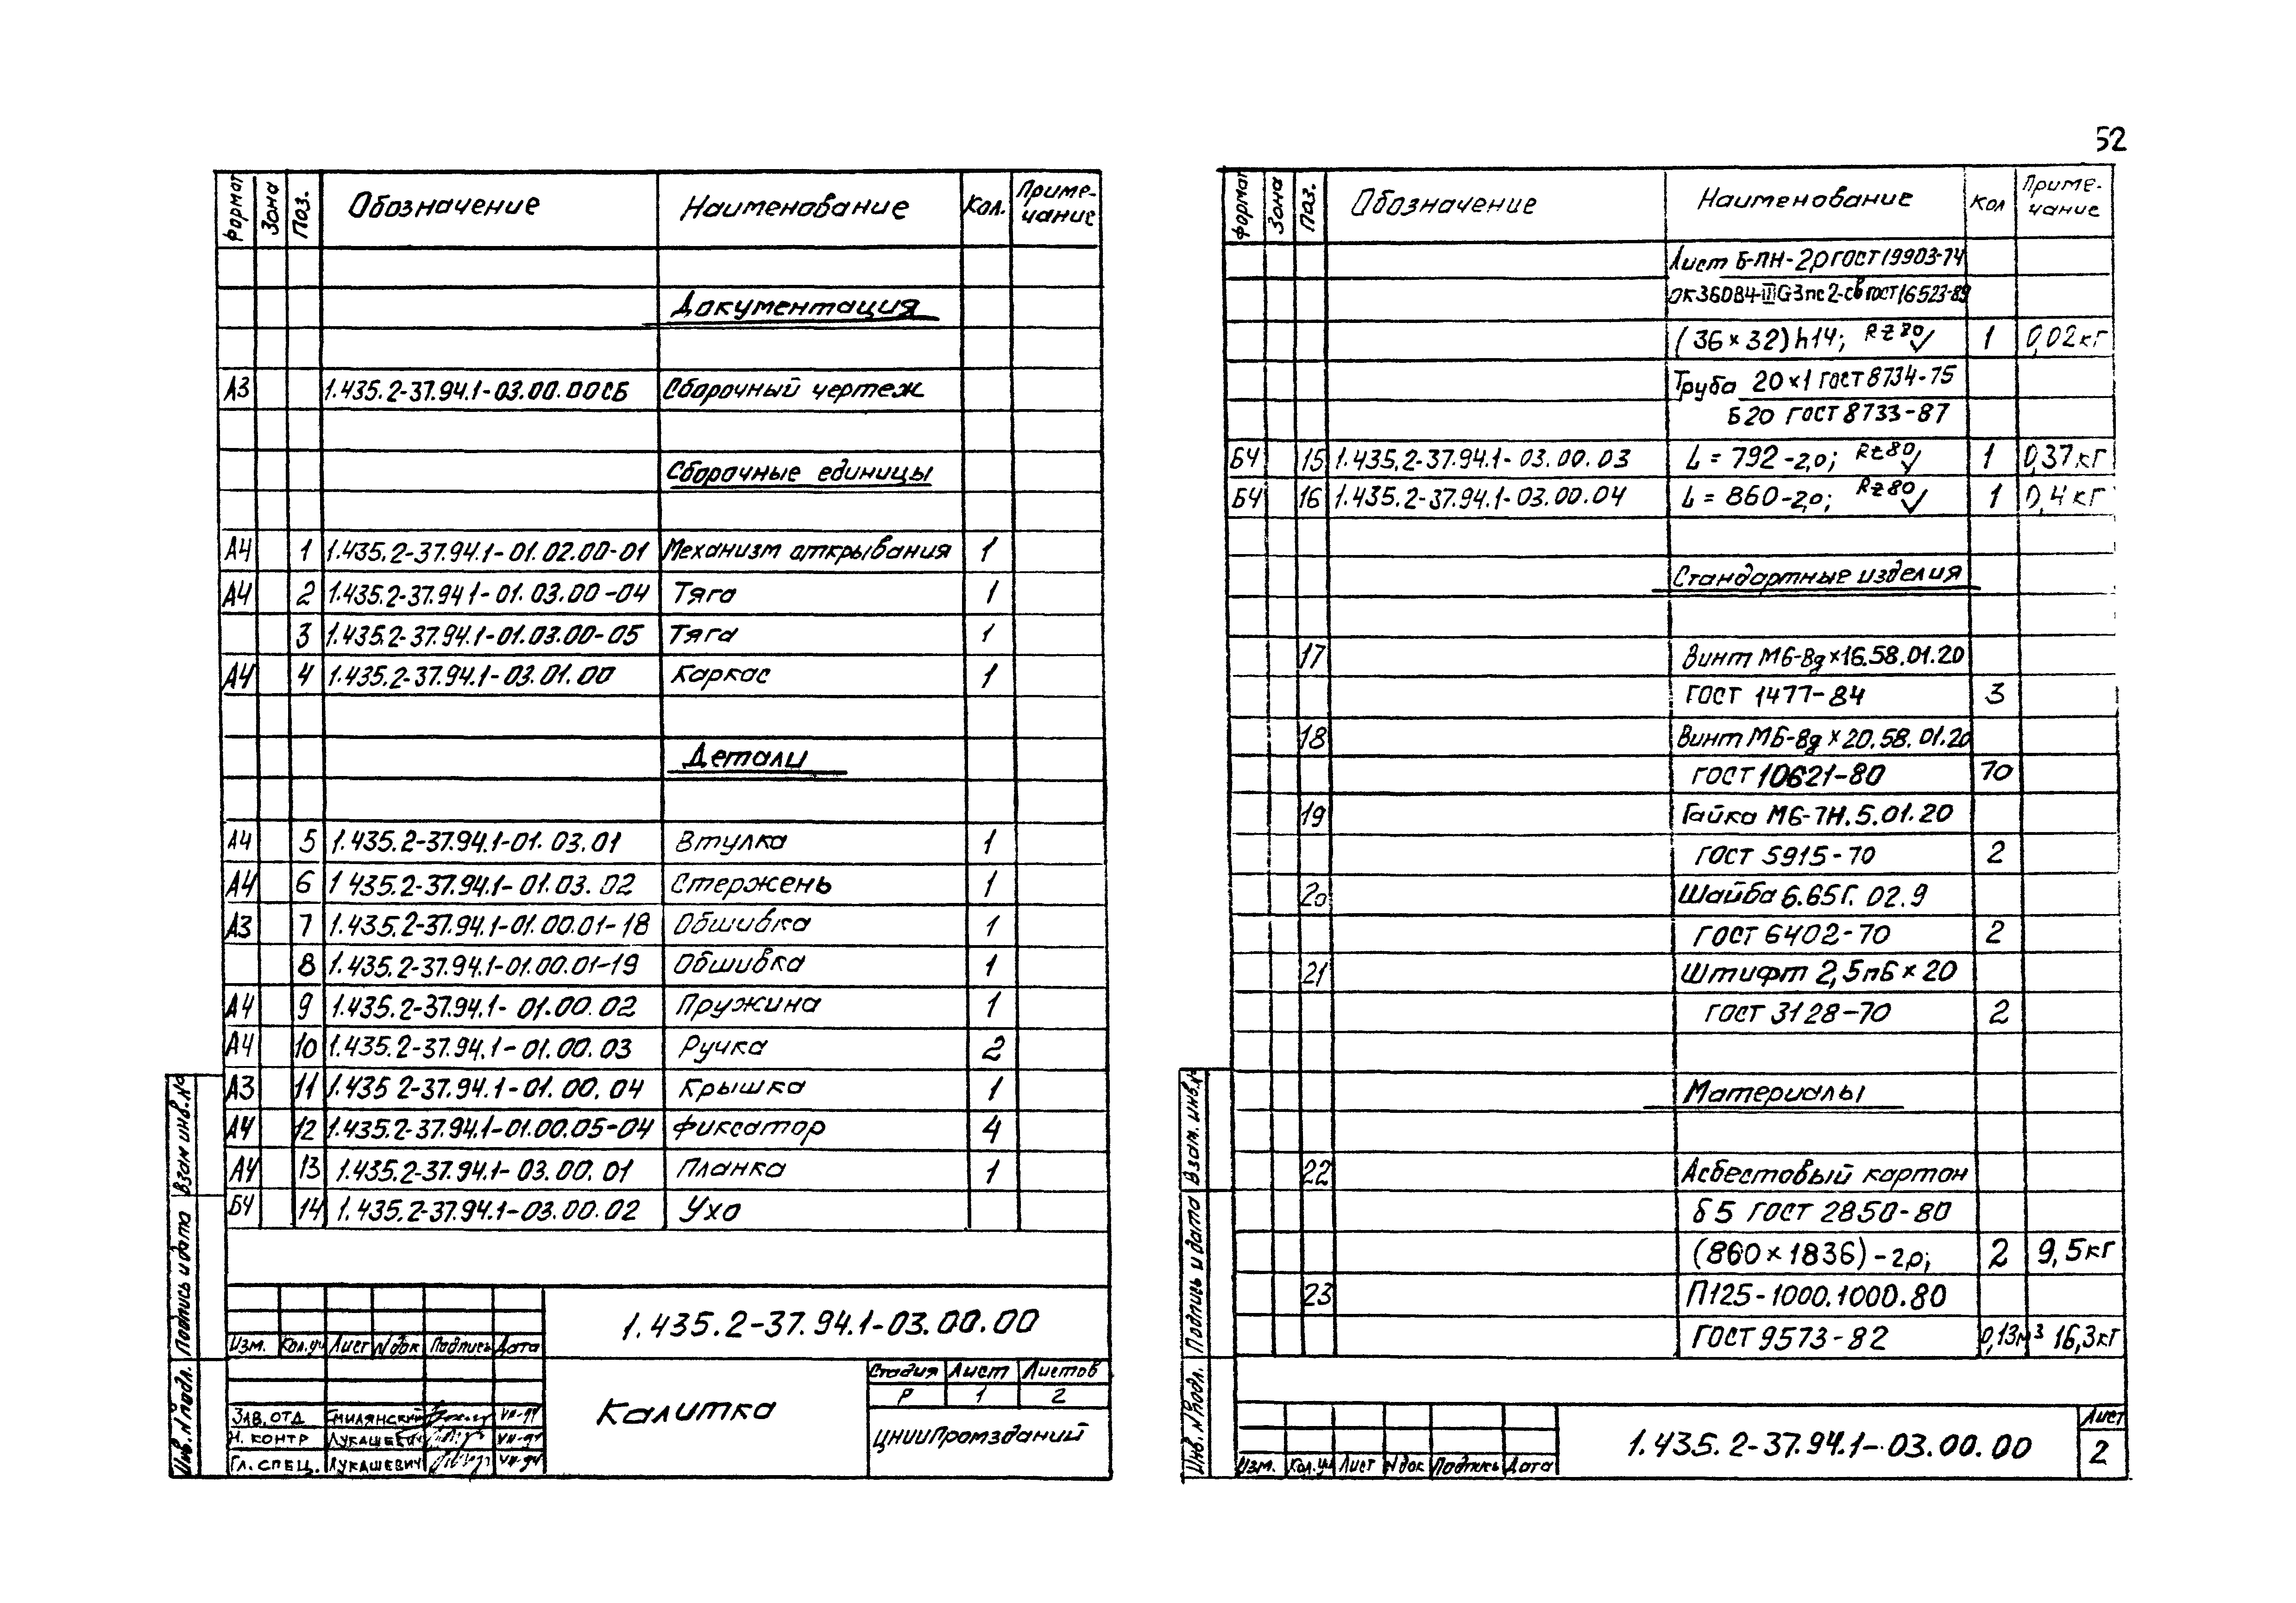 52
Формат Зона Поз. Обозначение Наименование Кол. Приме-
чание
Документация
А3 1.435.2-37.94.1-03.00.00СБ Сборочный чертеж
Сборочные единицы
А4 1 1.435.2-37.94.1-01.02.00-01 Механизм открывания 1
А4 2 1.435.2-37.94 1-01.03.00-04 Тяга 1
3 1.435.2-37.94.1-01.03.00-05 Тяга 1
А4 4 1.435.2-37.94.1-03.01.00 Каркас 1
Детали
А4 5 1.435.2-37.94.1-01.03.01 Втулка 1
А4 6 1 435.2-37.94.1-01.03.02 Стержень 1
А3 7 1.435.2-37.94.1-01.00.01-18 Обшивка 1
8 1.435.2-37.94.1-01.00.01-19 Обшивка 1
А4 9 1.435.2-37.94.1-01.00.02 Пружина 1
А4 10 1.435.2-37.94.1-01.00.03 Ручка 2
А3 11 1.435 2-37.94.1-01.00.04 Крышка 1
А4 12 1.435.2-37.94.1-01.00.05-04 Фиксатор 4
А4 13 1.435.2-37.94.1-03.00.01 Планка 1
БЧ 14 1.435.2-37.94.1-03.00.02 Ухо
Инв. № подл. Подпись и дата Взам инв. №
1.435.2-37.94.1-03.00.00
Изм. Кол.уч Лист № док Подпись Дата
Калитка
Стадия Лист Листов
Р 1 2
ЦНИИпромзданий
Зав. отд Смилянский VII-94
Н. контр Лукашевич VII-94
Гл. спец. Лукашевич VII-94
Формат Зона Поз. Обозначение Наименование Кол Приме-
чание
Лист Б-ПН-2,0 ГОСТ 19903-74
ОК360В4-III Ст3пс2-св ГОСТ 16523-89
(36×32)h14; Rz80 1 0,02кг
Труба 20×1 ГОСТ 8734-75
Б20 ГОСТ 8733-87
БЧ 15 1.435.2-37.94.1-03.00.03 L=792-2,0; Rz80 1 0,37кг
БЧ 16 1.435.2-37.94.1-03.00.04 L=860-2,0; Rz80 1 0,4кг
Стандартные изделия
17 Винт М6-8g×16.58.01.20
ГОСТ 1477-84 3
18 Винт М6-8g×20.58.01.20
ГОСТ 10621-80 70
19 Гайка М6-7Н.5.01.20
ГОСТ 5915-70 2
20 Шайба 6.65Г.02.9
ГОСТ 6402-70 2
21 Штифт 2,5п6×20
ГОСТ 3128-70 2
Материалы
22 Асбестовый картон
Б5 ГОСТ 2850-80
(860×1836)-2,0; 2 9,5кг
23 П125-1000.1000.80
ГОСТ 9573-82 0,13м³ 16,3кг
Инв. № подл. Подпись и дата Взам. инв. №
1.435.2-37.94.1-03.00.00
Лист
2
Изм. Кол.уч Лист № док Подпись Дата